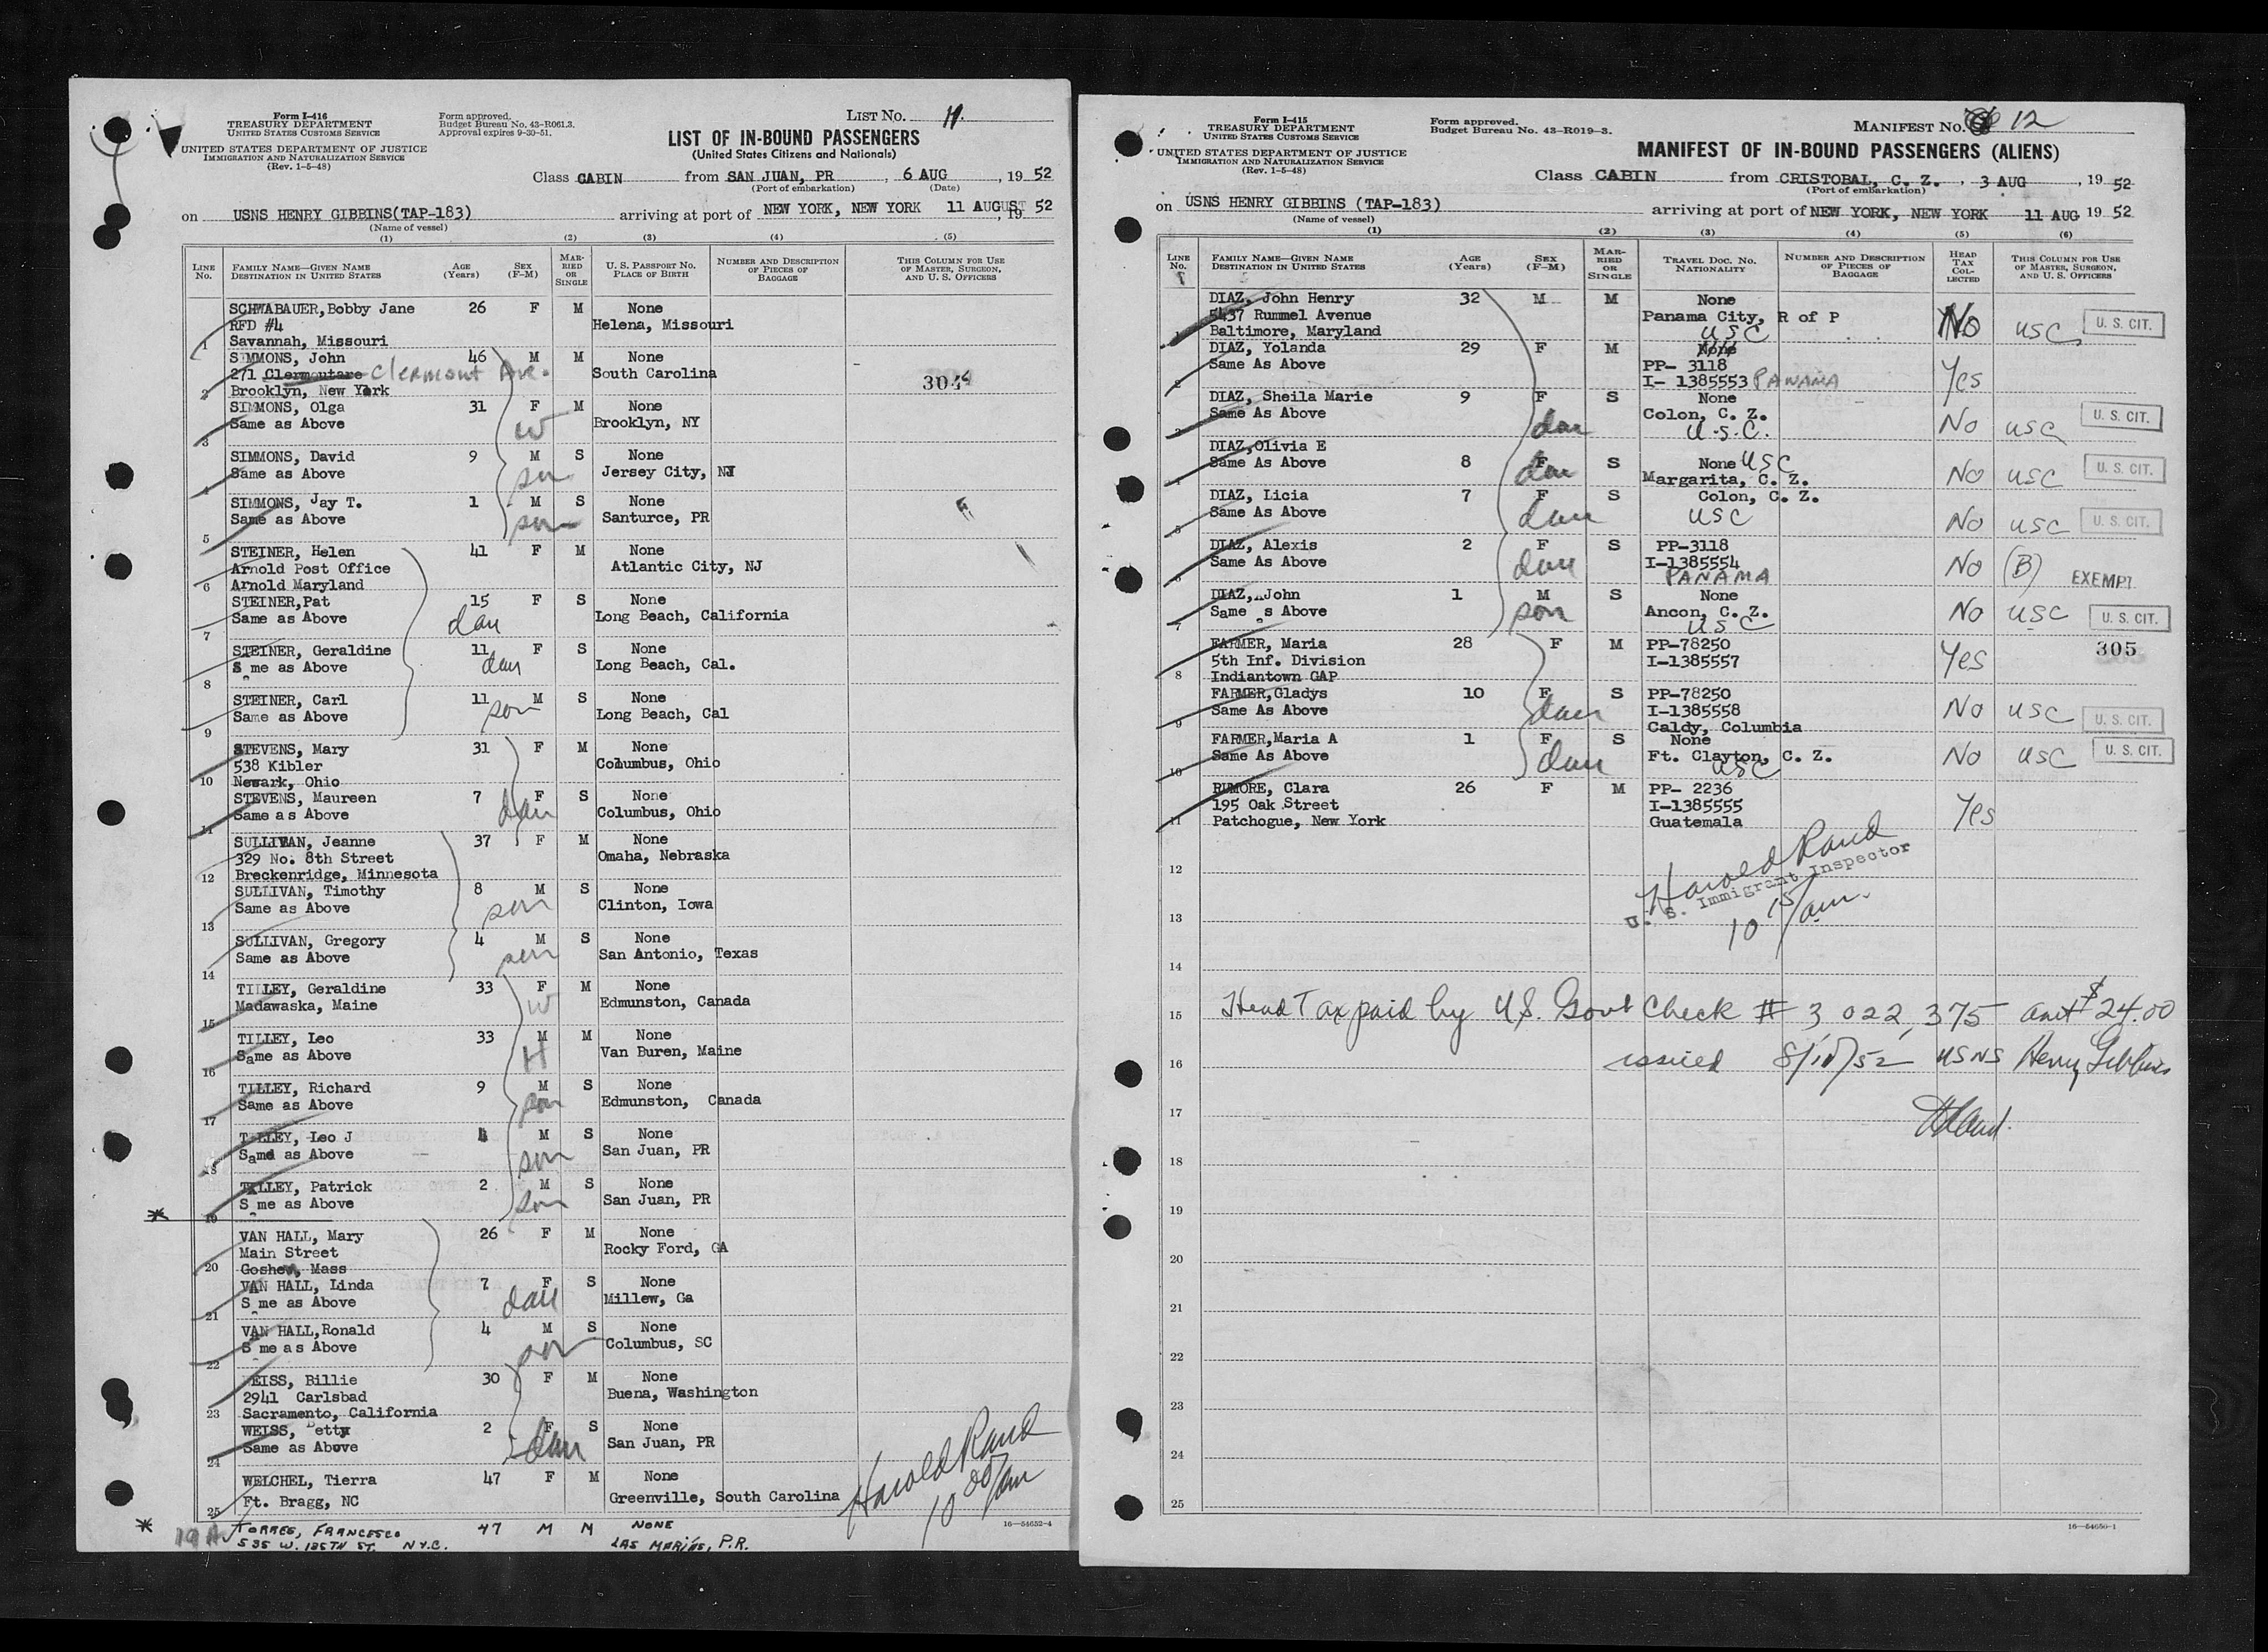 Form I-416
TREASURY DEPARTMENT
UNITED STATES CUSTOMS SERVICE
UNITED STATES DEPARTMENT OF JUSTICE
IMMIGRATION AND NATURALIZATION SERVICE
(Rev. 1-5-48)
Form approved.
Budget Bureau No. 43-R061.3.
Approval expires 9-30-51.
LIST NO. 11.
LIST OF IN-BOUND PASSENGERS
(United States Citizens and Nationals)
Class CABIN from SAN JUAN, PR, 6 AUG, 19 52
(Port of embarkation) (Date)
on USNS HENRY GIBBINS(TAP-183) arriving at port of NEW YORK, NEW YORK 11 AUGUST 19 52
(Name of vessel)
(1) (2) (3) (4) (5)
LINE No. FAMILY NAME—GIVEN NAME DESTINATION IN UNITED STATES AGE (Years) SEX (F-M) MARRIED OR SINGLE U. S. PASSPORT NO. PLACE OF BIRTH NUMBER AND DESCRIPTION OF PIECES OF BAGGAGE THIS COLUMN FOR USE OF MASTER, SURGEON, AND U. S. OFFICERS
SCHWABAUER, Bobby Jane 26 F M None
RFD #4 Helena, Missouri
1 Savannah, Missouri
SIMMONS, John 46 M M None
271 Clermoutare Clermont Ave. South Carolina 304
2 Brooklyn, New York
SIMMONS, Olga 31 F M None
Same as Above W Brooklyn, NY
3
SIMMONS, David 9 M S None
Same as Above son Jersey City, NJ
4
SIMMONS, Jay T. 1 M S None
Same as Above son Santurce, PR
5
STEINER, Helen 41 F M None
Arnold Post Office Atlantic City, NJ
6 Arnold Maryland
STEINER,Pat 15 F S None
Same as Above dau Long Beach, California
7
STEINER, Geraldine 11 F S None
Same as Above dau Long Beach, Cal.
8
STEINER, Carl 11 M S None
Same as Above son Long Beach, Cal
9
STEVENS, Mary 31 F M None
538 Kibler Columbus, Ohio
10 Newark, Ohio
STEVENS, Maureen 7 F S None
Same as Above dau Columbus, Ohio
11
SULLIVAN, Jeanne 37 F M None
329 No. 8th Street Omaha, Nebraska
12 Breckenridge, Minnesota
SULLIVAN, Timothy 8 M S None
Same as Above son Clinton, Iowa
13
SULLIVAN, Gregory 4 M S None
Same as Above son San Antonio, Texas
14
TILLEY, Geraldine 33 F M None
Madawaska, Maine W Edmunston, Canada
15
TILLEY, Leo 33 M M None
Same as Above H Van Buren, Maine
16
TILLEY, Richard 9 M S None
Same as Above son Edmunston, Canada
17
TILLEY, Leo J 4 M S None
Same as Above son San Juan, PR
18
TILLEY, Patrick 2 M S None
S me as Above son San Juan, PR
* 19
VAN HALL, Mary 26 F M None
Main Street Rocky Ford, GA
20 Goshen, Mass
VAN HALL, Linda 7 F S None
S me as Above dau Millew, Ga
21
VAN HALL,Ronald 4 M S None
S me as Above son Columbus, SC
22
WEISS, Billie 30 F M None
2941 Carlsbad Buena, Washington
23 Sacramento, California
WEISS, Betty 2 F S None
Same as Above dau San Juan, PR
24
WELCHEL, Tierra 47 F M None
25 Ft. Bragg, NC Greenville, South Carolina
Harold Rand
10 00/am
* 19A TORRES, FRANCESCO 47 M M NONE
535 W. 135TH ST. N.Y.C. LAS MARÍAS, P.R.
16—54652-4
Form I-415
TREASURY DEPARTMENT
UNITED STATES CUSTOMS SERVICE
UNITED STATES DEPARTMENT OF JUSTICE
IMMIGRATION AND NATURALIZATION SERVICE
(Rev. 1-5-48)
Form approved.
Budget Bureau No. 43-R019-3.
MANIFEST NO. 12
MANIFEST OF IN-BOUND PASSENGERS (ALIENS)
Class CABIN from CRISTOBAL, C. Z., 3 AUG, 19 52
(Port of embarkation)
on USNS HENRY GIBBINS (TAP-183) arriving at port of NEW YORK, NEW YORK 11 AUG 19 52
(Name of vessel)
(1) (2) (3) (4) (5) (6)
LINE No. FAMILY NAME—GIVEN NAME DESTINATION IN UNITED STATES AGE (Years) SEX (F-M) MARRIED OR SINGLE TRAVEL DOC. NO. NATIONALITY NUMBER AND DESCRIPTION OF PIECES OF BAGGAGE HEAD TAX COLLECTED THIS COLUMN FOR USE OF MASTER, SURGEON, AND U. S. OFFICERS
DIAZ, John Henry 32 M M None
5437 Rummel Avenue Panama City, R of P No USC U. S. CIT.
1 Baltimore, Maryland USC
DIAZ, Yolanda 29 F M None
Same As Above PP- 3118
2 I- 1385553 PANAMA Yes
DIAZ, Sheila Marie 9 F S None
Same As Above dau Colon, C. Z. No USC U. S. CIT.
3 U.S.C.
DIAZ,Olivia E
Same As Above 8 F dau S None USC No USC U. S. CIT.
4 Margarita, C. Z.
DIAZ, Licia 7 F S Colon, C. Z.
Same As Above dau USC No USC U. S. CIT.
5
DIAZ, Alexis 2 F S PP-3118
Same As Above dau I-1385554 No (B) EXEMPT
6 PANAMA
DIAZ, John 1 M S None
Same s Above son Ancon, C. Z. No USC U. S. CIT.
7 USC
FARMER, Maria 28 F M PP-78250 305
5th Inf. Division I-1385557 Yes
8 Indiantown GAP
FARMER,Gladys 10 F S PP-78250
Same As Above dau I-1385558 No USC U. S. CIT.
9 Caldy, Columbia
FARMER,Maria A 1 F S None
Same As Above dau Ft. Clayton, C. Z. No USC U. S. CIT.
10 USC
RUMORE, Clara 26 F M PP- 2236
195 Oak Street I-1385555
11 Patchogue, New York Guatemala Yes
12
Harold Rand
U. S. Immigrant Inspector
13
10 15/am.
14
15 Head Tax paid by U.S. Govt Check # 3,022,375 amt $24.00
16 issued 8/10/52 USNS Henry Gibbins
17 HRand.
18
19
20
21
22
23
24
25
16—54650-1